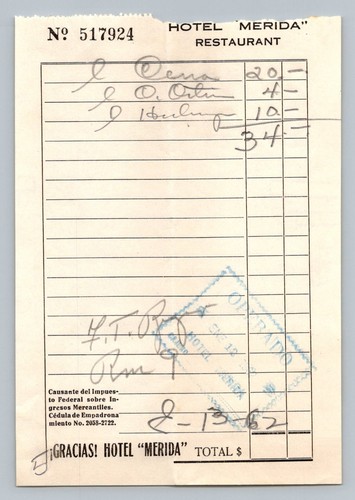 Nº 517924
HOTEL "MERIDA"
RESTAURANT
1 Cena 20 —
1 O. 4 —
1 10 —
34 —
OPERADO
HOTEL MERIDA
F. T.
Rm 9
Causante del Impues-
to Federal sobre In-
gresos Mercantiles.
Cédula de Empadrona
miento No. 2058-2722.
2-13-62
¡GRACIAS! HOTEL "MERIDA" TOTAL $